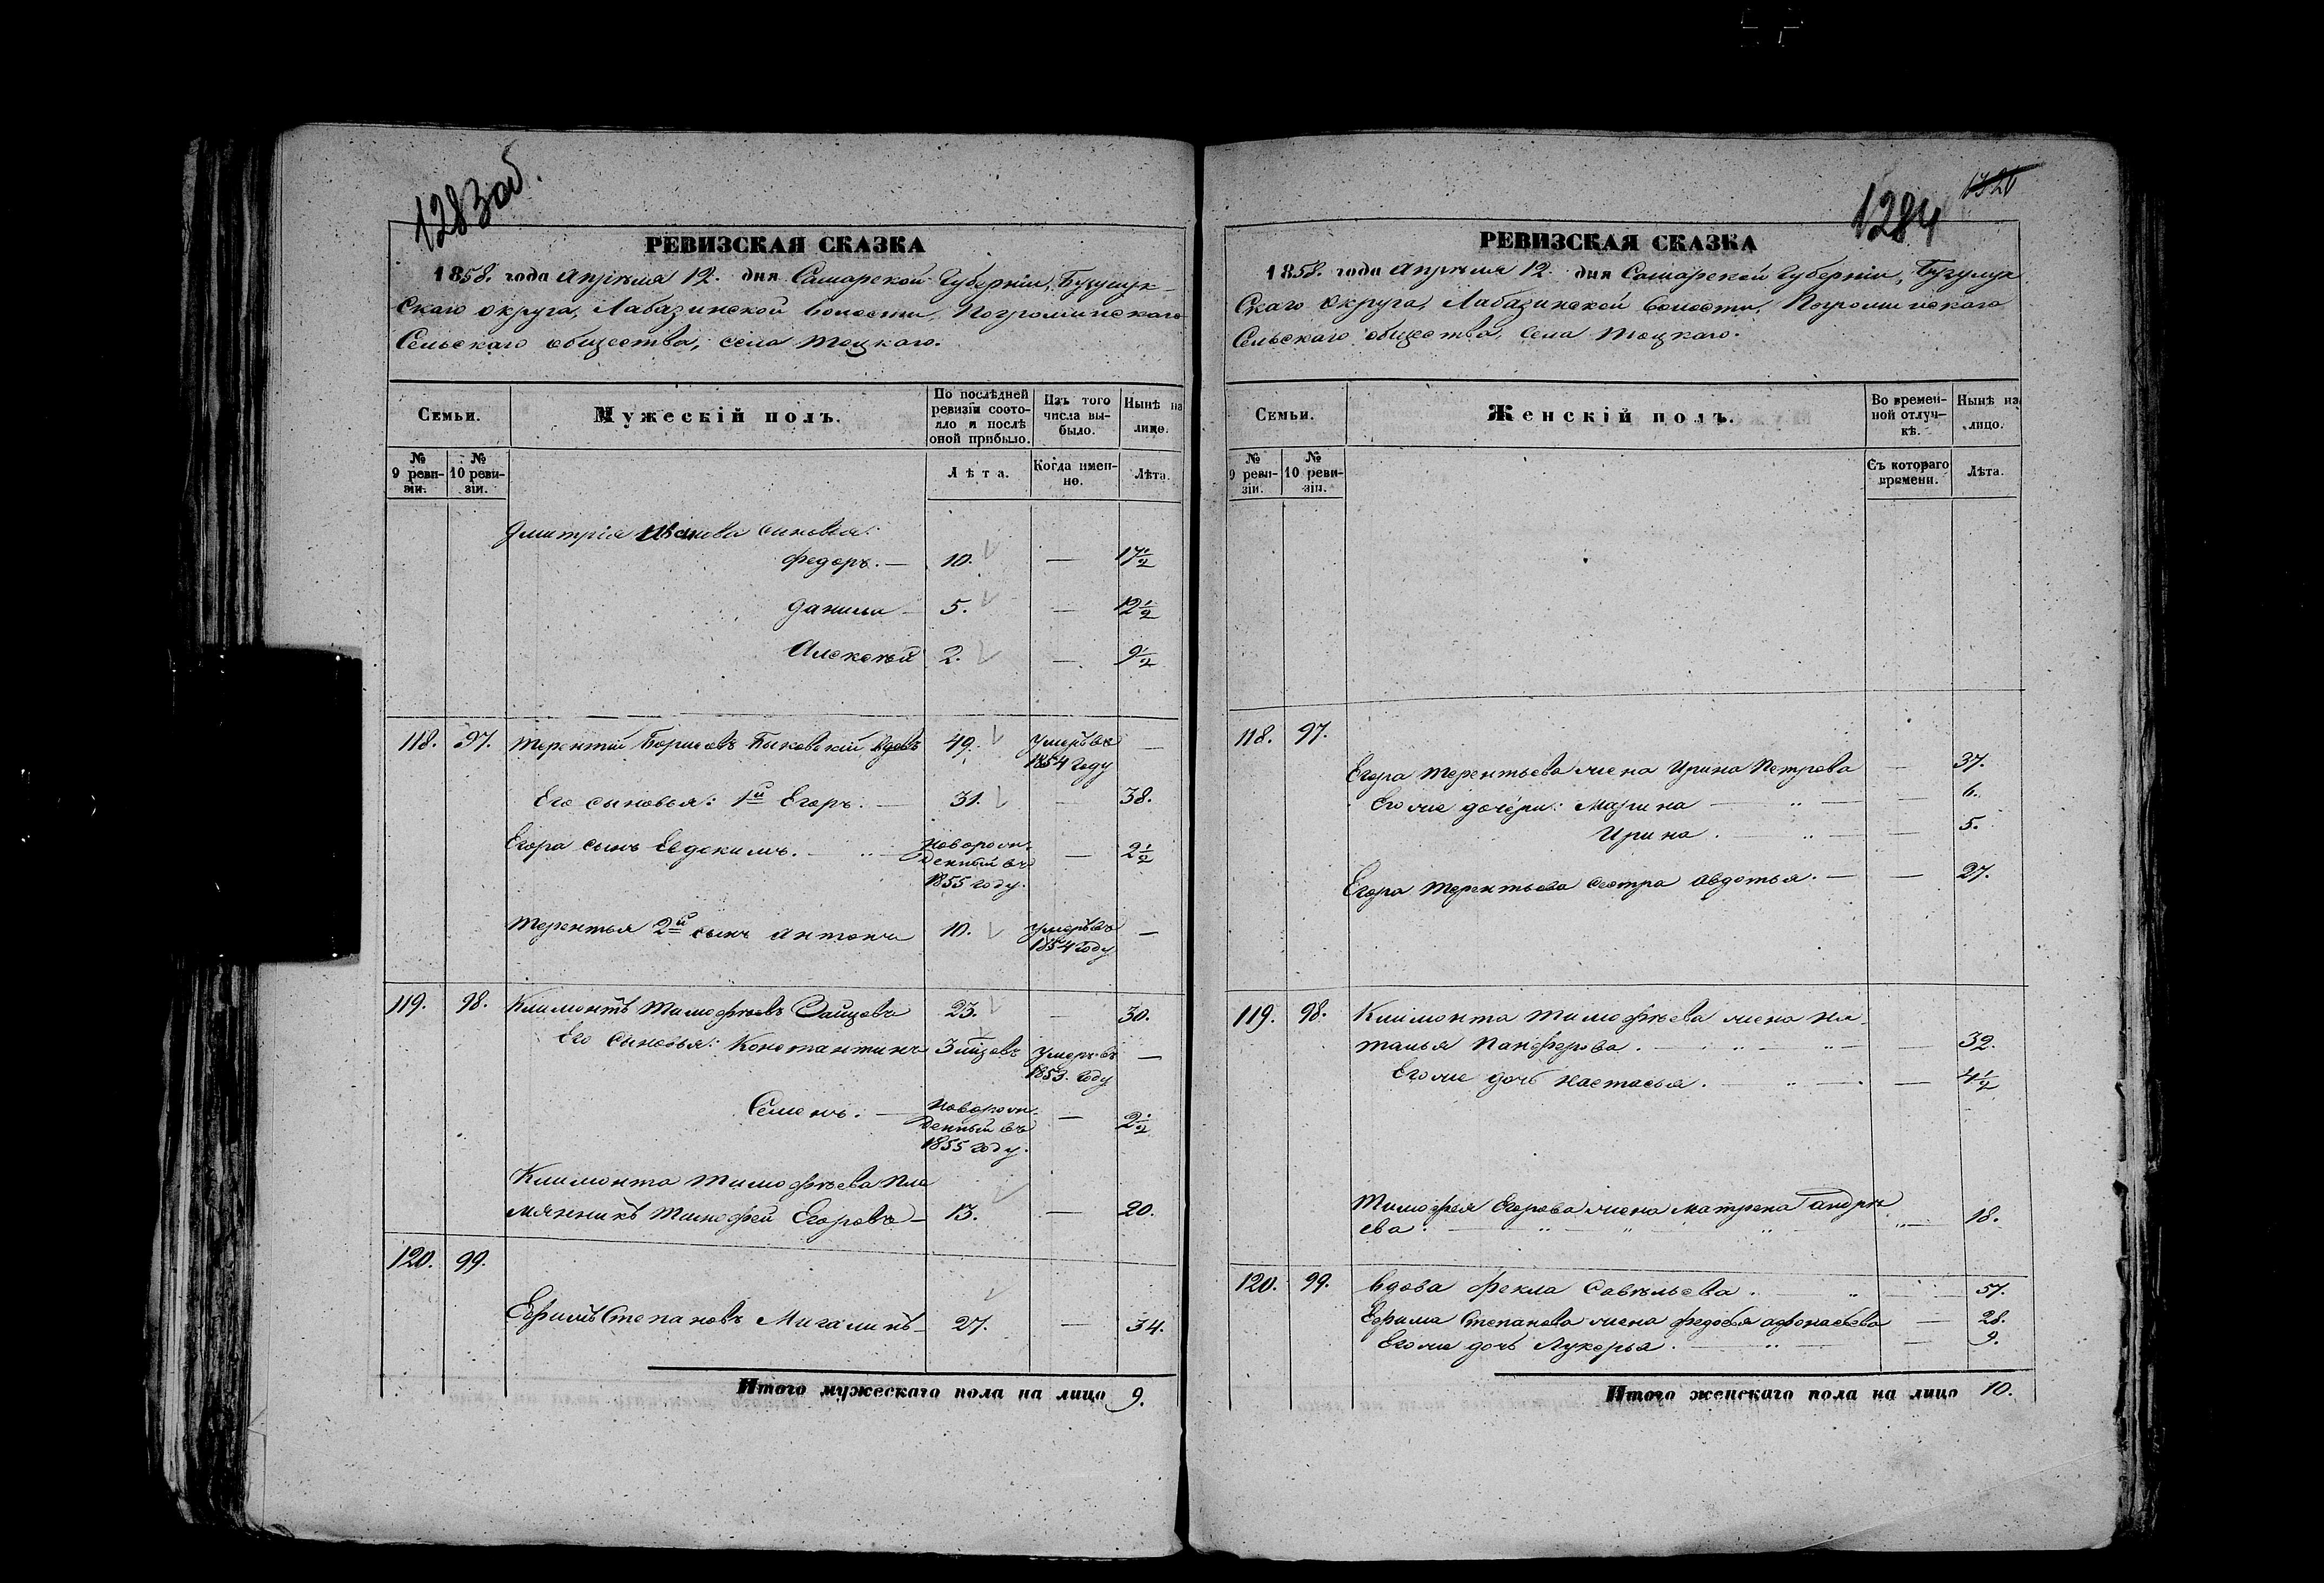 1283 об.
РЕВИЗСКАЯ СКАЗКА
1858. года Апрѣля 12. дня Самарской Губерніи, Бузулук-
скаго округа, Лабазинской волости, Погроминскаго
Сельскаго общества, села Тоцкаго.
Семьи.
Мужескій полъ.
По послѣдней
ревизіи состо-
яло и послѣ
оной прибыло.
Изъ того
числа вы-
было.
Нынѣ на
лицо.
№
9 реви-
зіи.
№
10 реви-
зіи.
Лѣта.
Когда имен-
но.
Лѣта.
Дмитрія Иванова сыновья:
Федоръ. — 10. — 17½
Данила — 5. — 12½
Алексѣй 2. — 9½
118. 97. Терентій Борисовъ Быковскій вдовъ 49. умеръ въ —
1854 году
Его сыновья: 1й Егоръ. — 31. — 38.
Егора сынъ Евдокимъ. — новорож-
денный въ — 2½
1855 году.
Терентья 2й сынъ Антонъ 10. умеръ въ —
1854 году
119. 98. Климонтъ Тимофѣевъ 23. — 30.
Его сыновья: Константинъ 3 мѣсов. умеръ въ —
1853. году
Семенъ. — новорож-
денный въ — 2½
1855 году.
Климонта Тимофѣева пле
мянникъ Тимофей Егоровъ — 13. — 20.
120. 99.
Ефимъ Степановъ Мигалинъ — 27. — 34.
Итого мужескаго пола на лицо 9.
1284
РЕВИЗСКАЯ СКАЗКА
1858. года Апрѣля 12. дня Самарской Губерніи, Бузулук
скаго округа, Лабазинской волости, Погроминскаго
Сельскаго общества, села Тоцкаго.
Семьи.
Женскій полъ.
Во времен-
ной отлуч-
кѣ.
Нынѣ на
лицо.
№
9 реви-
зіи.
№
10 реви-
зіи.
Съ котораго
времени.
Лѣта.
118. 97.
Егора Терентьева жена Ирина Петрова — 37.
Его же дочери: Марина — 6.
Ирина. — 5.
Егора Терентьева сестра Авдотья. — 27.
119. 98. Климонта Тимофѣева жена На-
талья Панферова. — 32.
Его же дочь Настасья. — 4½
Тимофея Егорова жена Матрена
ева. — 18.
120. 99. Вдова Фекла Савѣльева. — 57.
Ефима Степанова жена Федосья Афонасьева — 28.
Его же дочь Лукерья. — 9.
Итого женскаго пола на лицо 10.